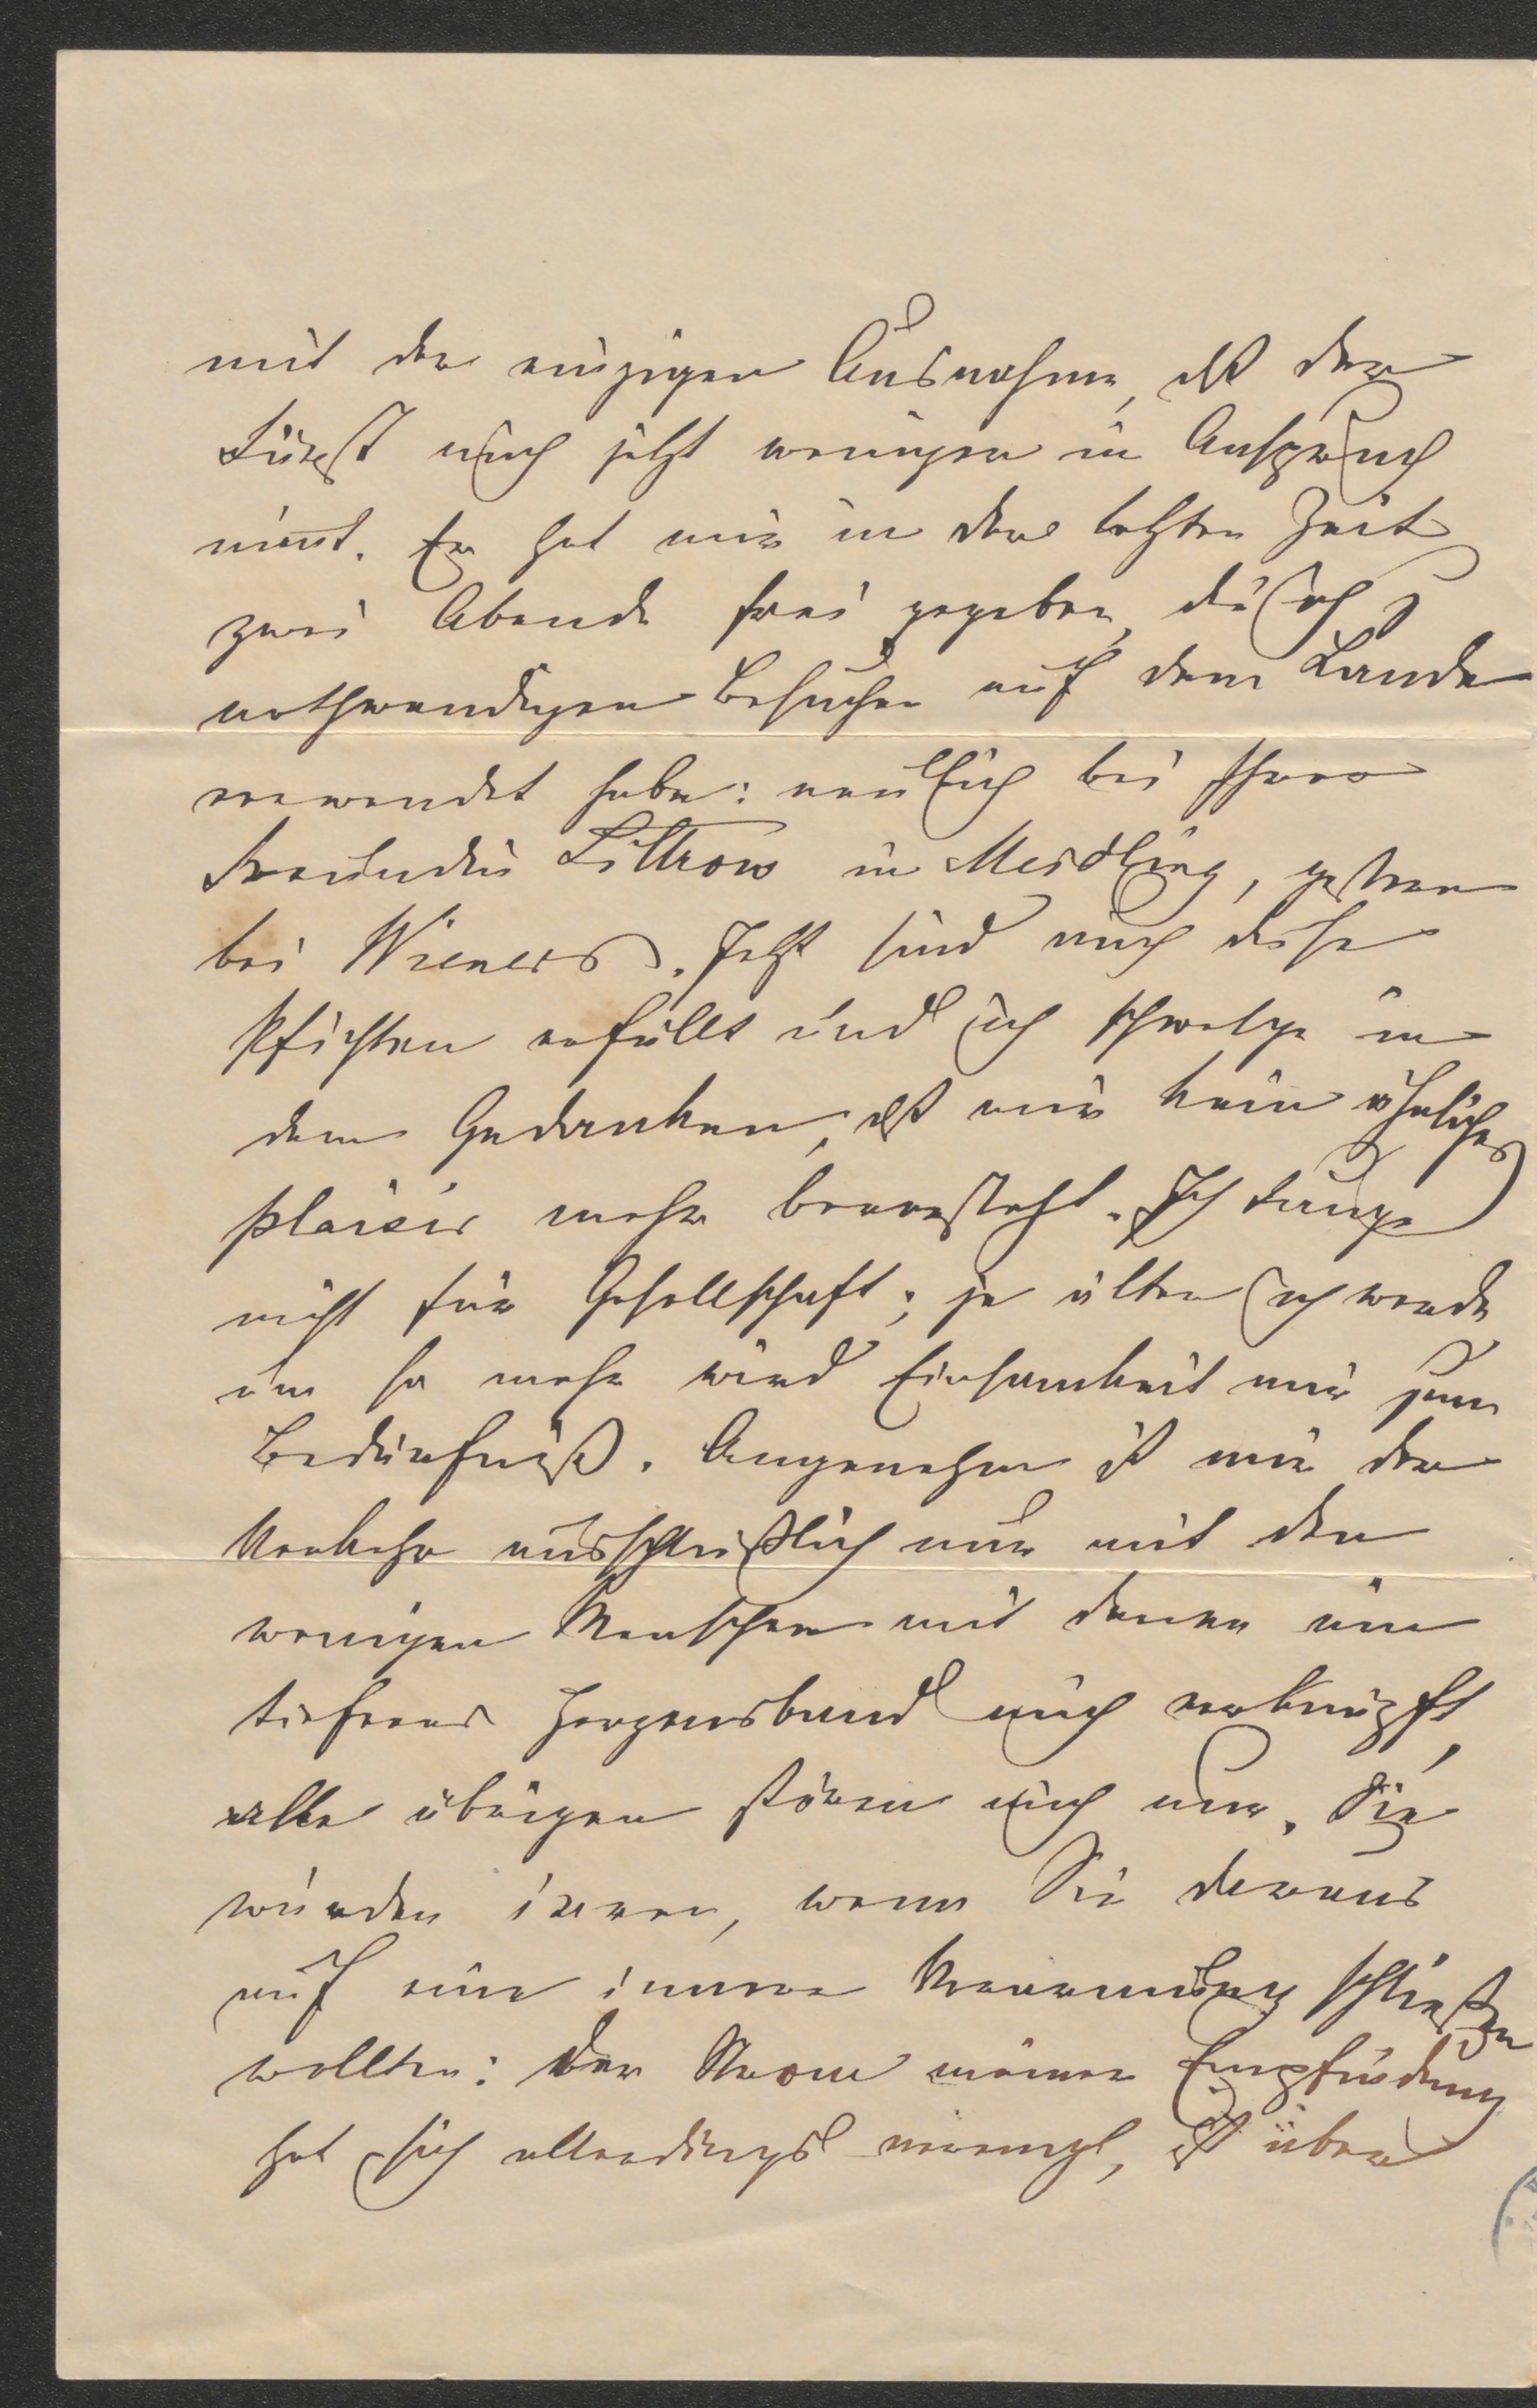 mit der einzigen Ausnahme, dß der
Fürst mich jetzt weniger in Anspruch
nimt. Er hat mir in der letzten Zeit
zwei Abende frei gegeben, die ich zu
nothwendigen Besuchen auf dem Lande
verwendet habe: neulich bei Ihrer
Freundin Littrow in Meidling, gestern
bei Wieners. Jetzt sind auch diese
Pflichten erfüllt und ich schwelge in
dem Gedanken, dß mir kein ähnliches
plaisir mehr bevorsteht. Ich tauge
nicht für Gesellschaft; je älter ich werde
um so mehr wird Einsamkeit mir zum
Bedürfniß. Angenehm ist mir der
Verkehr ausschließlich nur mit den
wenigen Menschen mit denen ein
tieferes Herzensband mich verknüpft,
alle übrigen stören mich nur. Sie
würden irren, wenn Sie daraus
auf eine innere Verarmung schließen
wollten: der Strom meiner Empfindung
hat sich allerdings verengt, ist aber